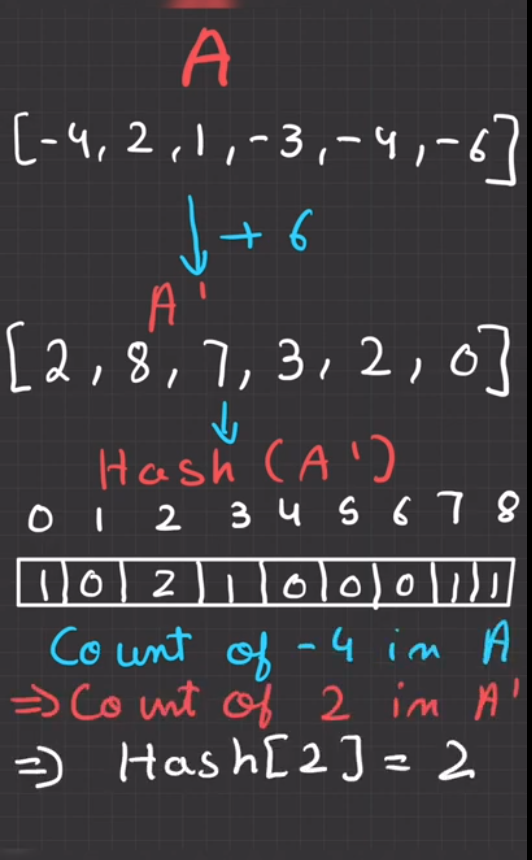 A
[-4, 2, 1, -3, -4, -6]
↓ + 6
A'
[2, 8, 7, 3, 2, 0]
↓
Hash (A')
0 1 2 3 4 5 6 7 8
|1|0|2|1|0|0|0|1|1|
Count of -4 in A
⇒ Count of 2 in A'
⇒ Hash[2] = 2